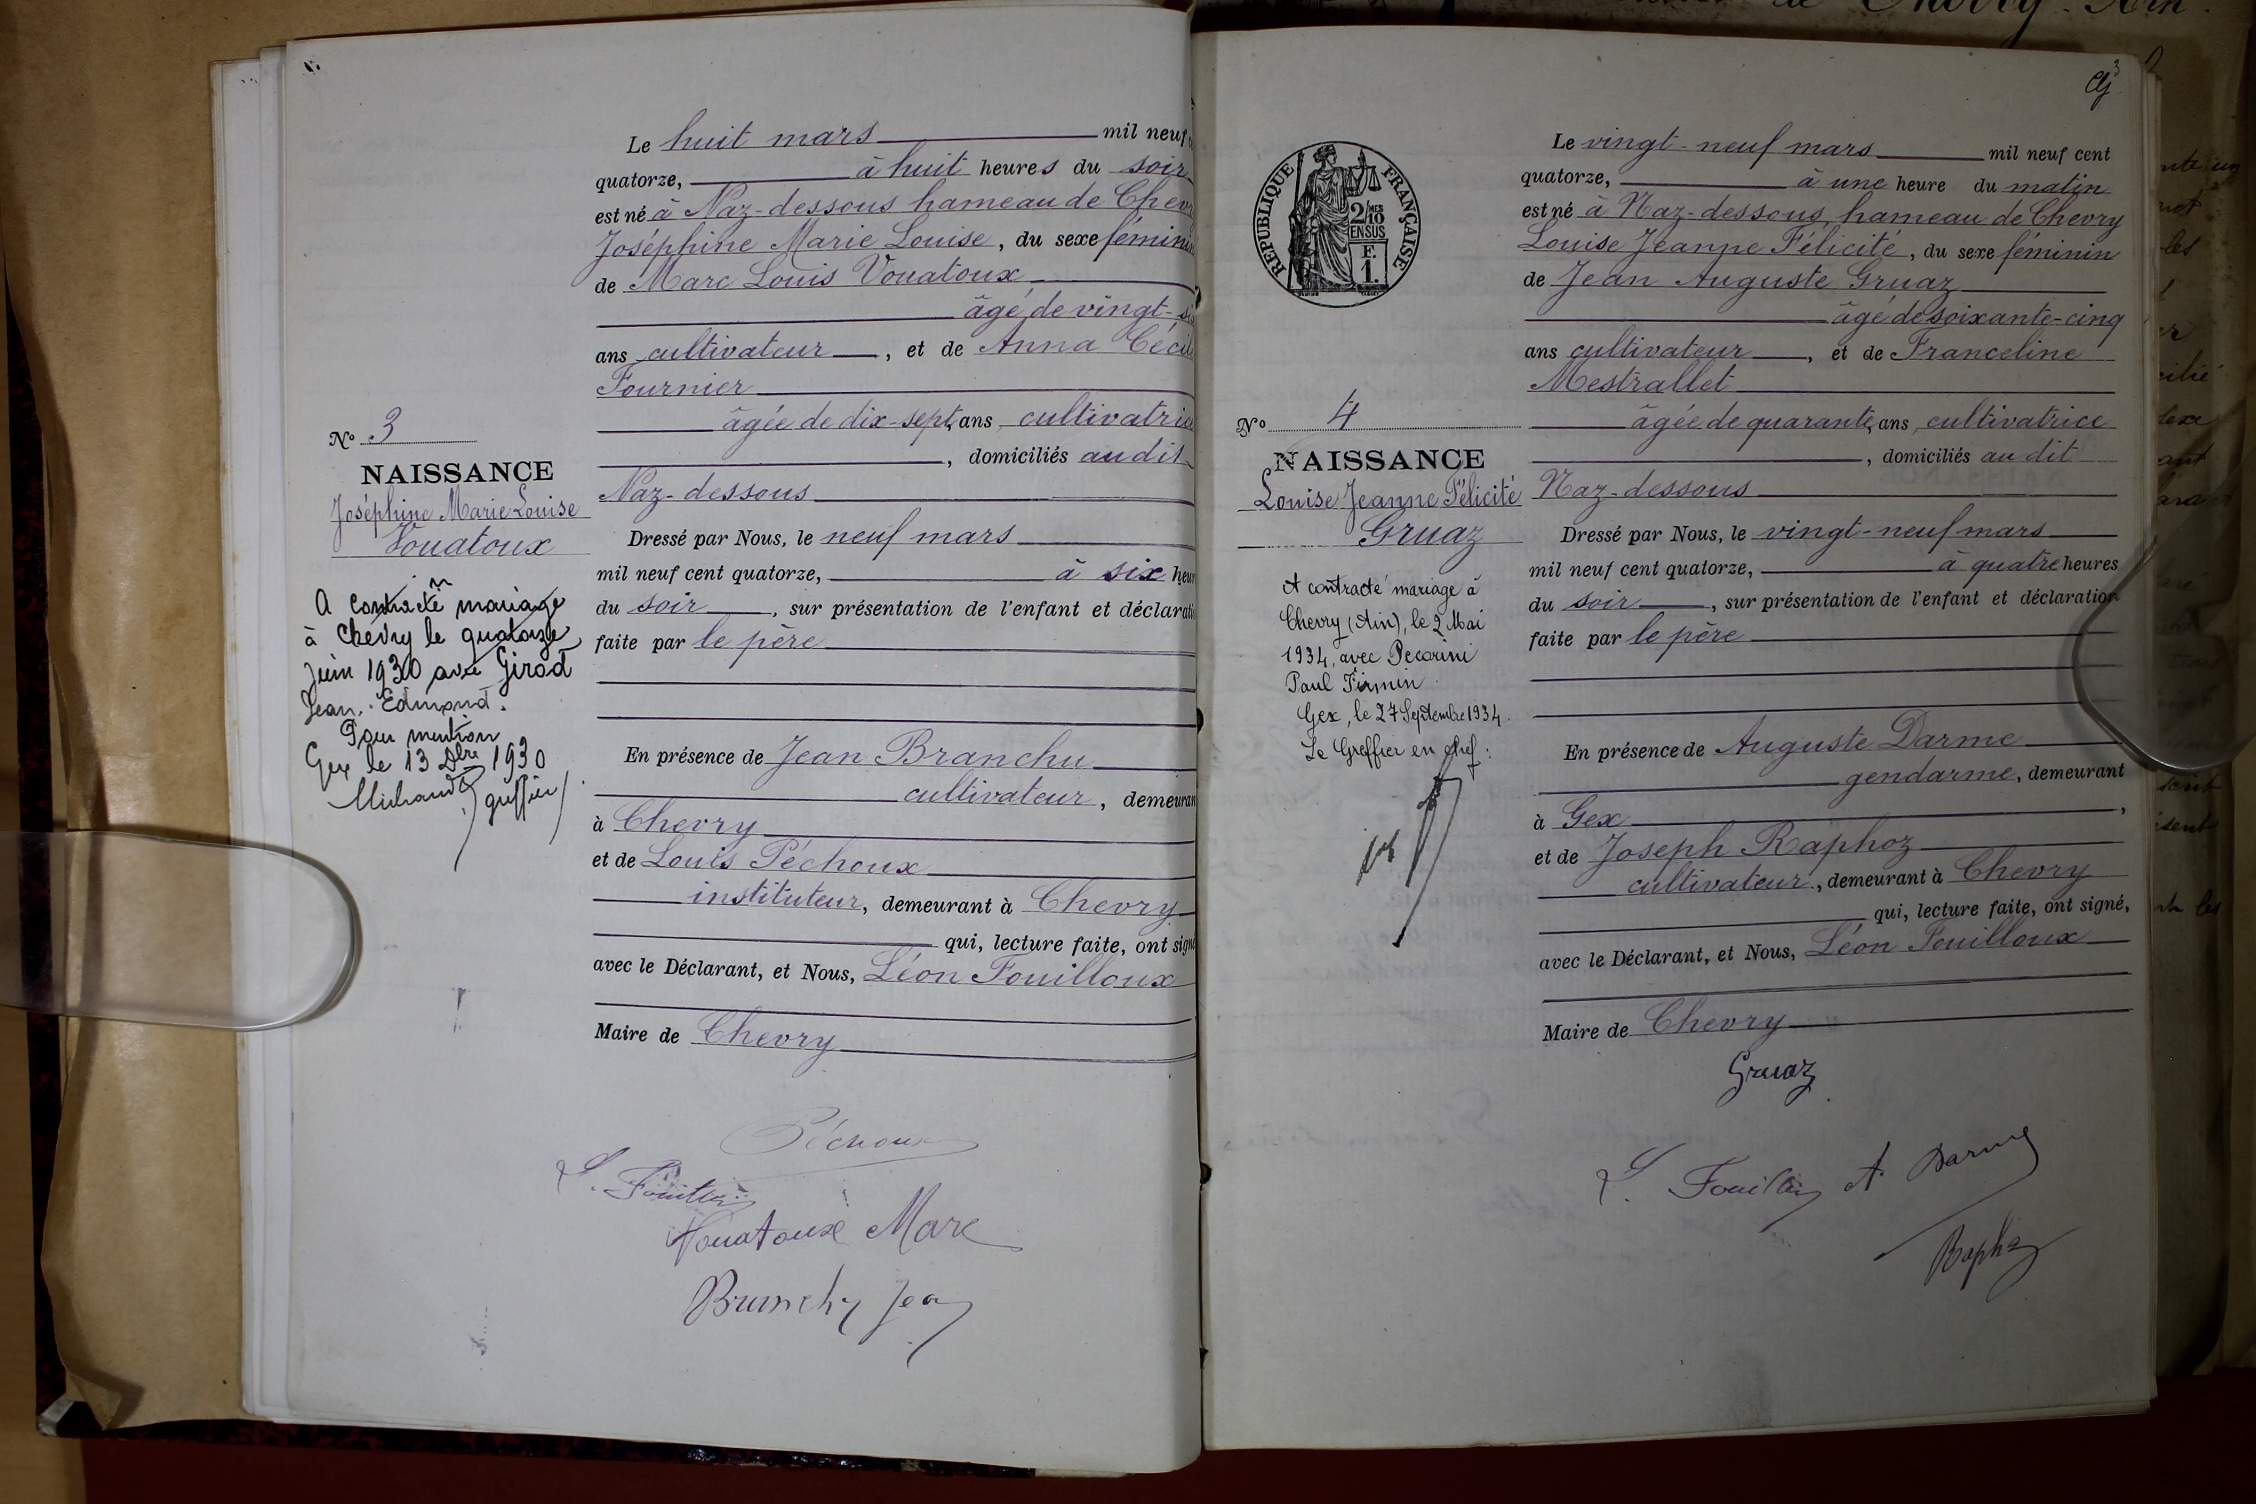 Le huit mars mil neuf
quatorze, à huit heures du soir
est né à Naz-dessous hameau de Chevry
Joséphine Marie Louise, du sexe féminin
de Marc Louis Vouatoux
âgé de vingt-six
ans cultivateur, et de Anna Cécile
Fournier
âgée de dix-sept, ans cultivatrice
, domiciliés au dit
Naz-dessous
Dressé par Nous, le neuf mars
mil neuf cent quatorze, à six heur
du soir, sur présentation de l'enfant et déclarati
faite par le père
En présence de Jean Branchu
cultivateur, demeuran
à Chevry
et de Louis Péchoux
instituteur, demeurant à Chevry
qui, lecture faite, ont signé
avec le Déclarant, et Nous, Léon Fouilloux
Maire de Chevry
Péchoux
L. Fouilloux
Vouatoux Marc
Branchu Jean
No 3
NAISSANCE
Joséphine Marie Louise
Vouatoux
A contracté mariage
à Chevry le quatorze
Juin 1930 avec Girod
Jean. Edmond.
Pour mention
Gex le 13 Dbre 1930
greffier
RÉPUBLIQUE FRANÇAISE
2/10 MES
EN SUS
F.
1.
No 4
NAISSANCE
Louise Jeanne Félicité
Gruaz
A contracté mariage à
Chevry (Ain), le 2 Mai
1934, avec Pecorini
Paul Firmin
Gex, le 27 Septembre 1934.
Le Greffier en chef:
3
Le vingt-neuf mars mil neuf cent
quatorze, à une heure du matin
est né à Naz-dessous, hameau de Chevry
Louise Jeanne Félicité, du sexe féminin
de Jean Auguste Gruaz
âgé de soixante-cinq
ans cultivateur, et de Franceline
Mestrallet
âgée de quarante, ans cultivatrice
, domiciliés au dit
Naz-dessous
Dressé par Nous, le vingt-neuf mars
mil neuf cent quatorze, à quatre heures
du soir, sur présentation de l'enfant et déclaration
faite par le père
En présence de Auguste Darme
gendarme, demeurant
à Gex,
et de Joseph Raphoz
cultivateur, demeurant à Chevry
qui, lecture faite, ont signé,
avec le Déclarant, et Nous, Léon Fouilloux
Maire de Chevry
Gruaz
L. Fouilloux A. Darme
Raphoz